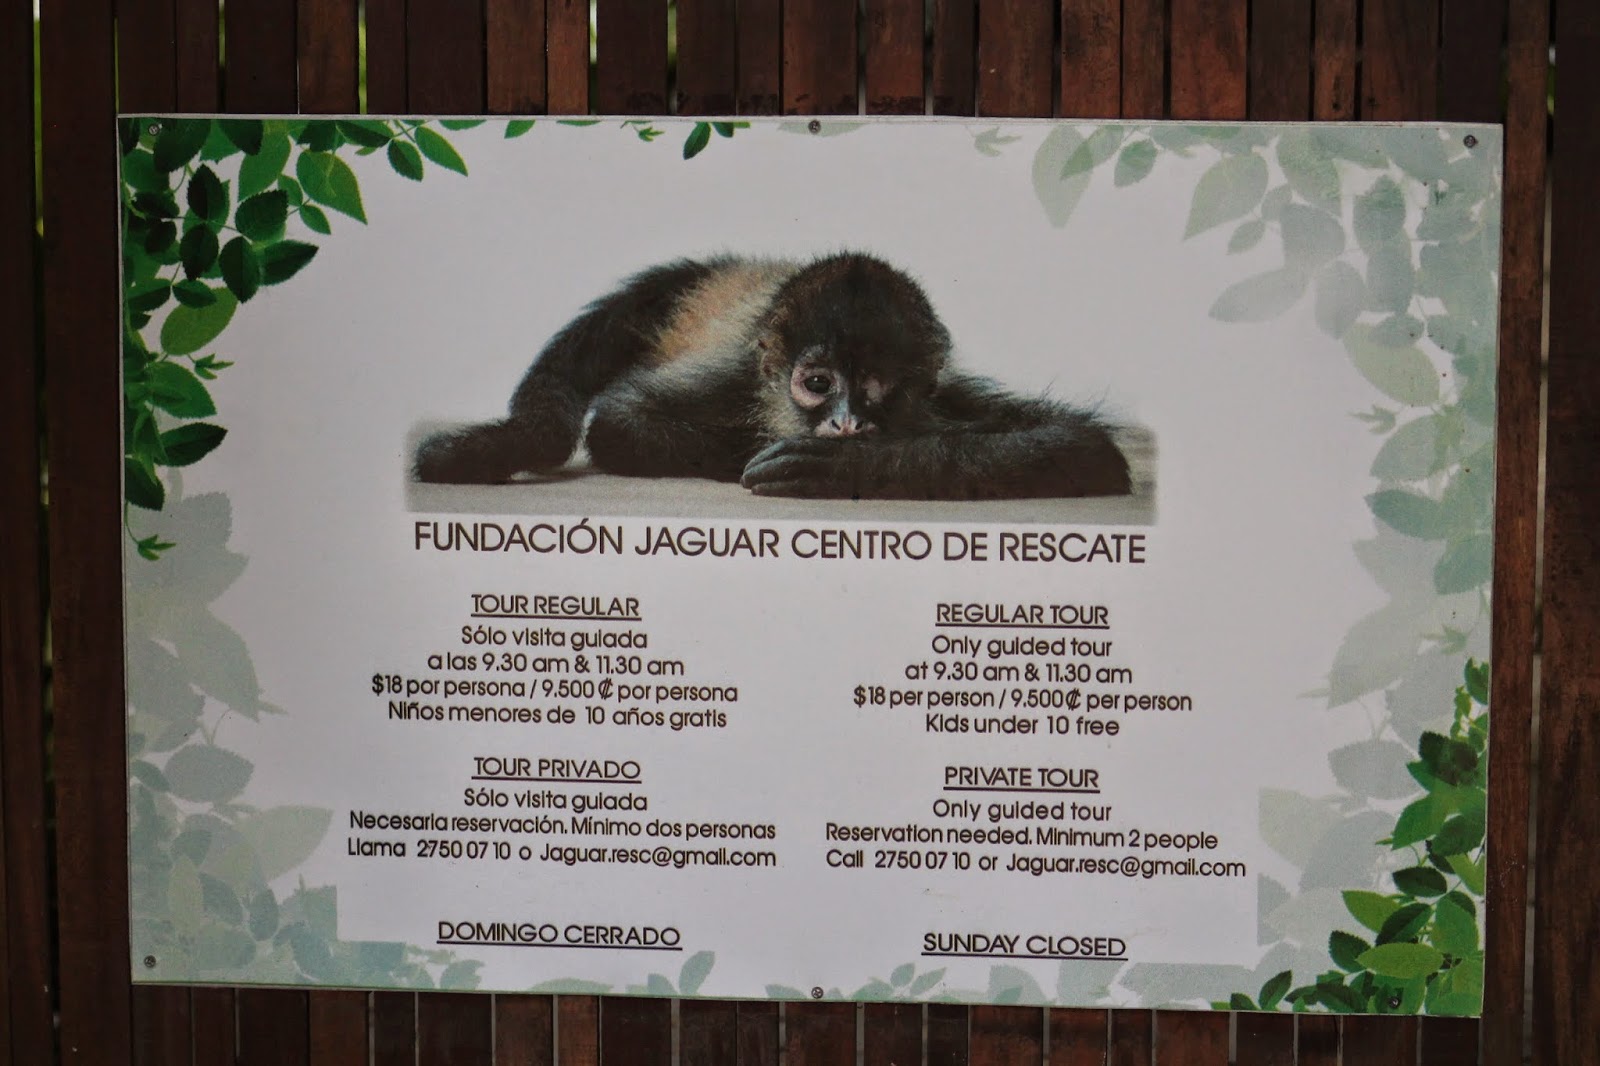 FUNDACIÓN JAGUAR CENTRO DE RESCATE
TOUR REGULAR
Sólo visita guiada
a las 9.30 am & 11.30 am
$18 por persona / 9.500₡ por persona
Niños menores de 10 años gratis
TOUR PRIVADO
Sólo visita guiada
Necesaria reservación. Mínimo dos personas
Llama 2750 07 10 o Jaguar.resc@gmail.com
DOMINGO CERRADO
REGULAR TOUR
Only guided tour
at 9.30 am & 11.30 am
$18 per person / 9.500₡ per person
Kids under 10 free
PRIVATE TOUR
Only guided tour
Reservation needed. Minimum 2 people
Call 2750 07 10 or Jaguar.resc@gmail.com
SUNDAY CLOSED